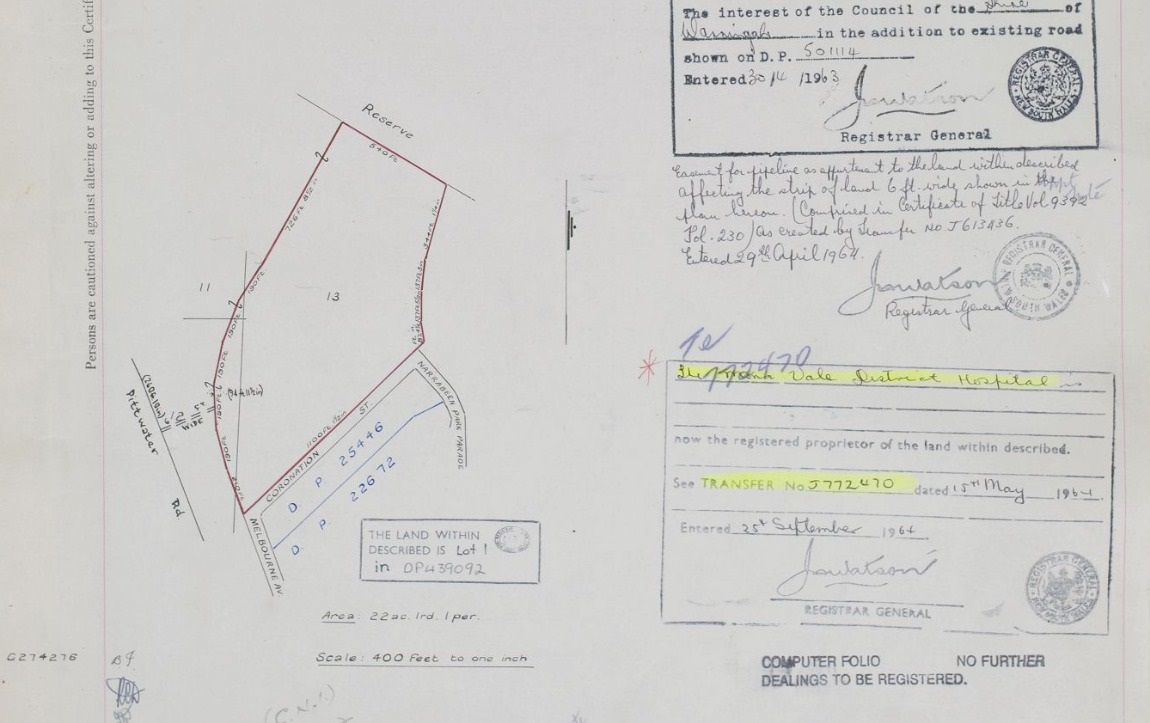 Persons are cautioned against altering or adding to this Certif
Reserve
840ft
726ft
11
13
180ft
190ft
Pittwater
Rd
WIDE
NARRABEEN PARK PARADE
CORONATION ST.
1100ft
D. P. 25446
D. P. 22672
MELBOURNE AV.
THE LAND WITHIN
DESCRIBED IS Lot 1
in DP439092
Area: 22ac. 1rd. 1per.
Scale: 400 Feet to one inch
G274276
The interest of the Council of the Shire of
Warringah in the addition to existing road
shown on D.P. 501114
Entered 30/4/1963
JWatson
Registrar General
REGISTRAR GENERAL
NEW SOUTH WALES
Easement for pipeline as appurtenant to the land within described
affecting the strip of land 6 ft. wide shown in the
plan hereon. (Comprised in Certificate of Title Vol. 9392
Fol. 230) as created by Transfer No. J613436.
Entered 29th April 1964.
JWatson
Registrar General
REGISTRAR GENERAL
J772470
The Mona Vale District Hospital is
now the registered proprietor of the land within described.
See TRANSFER No. J772470 dated 15th May 1964.
Entered 25th September 1964
JWatson
REGISTRAR GENERAL
COMPUTER FOLIO NO FURTHER
DEALINGS TO BE REGISTERED.